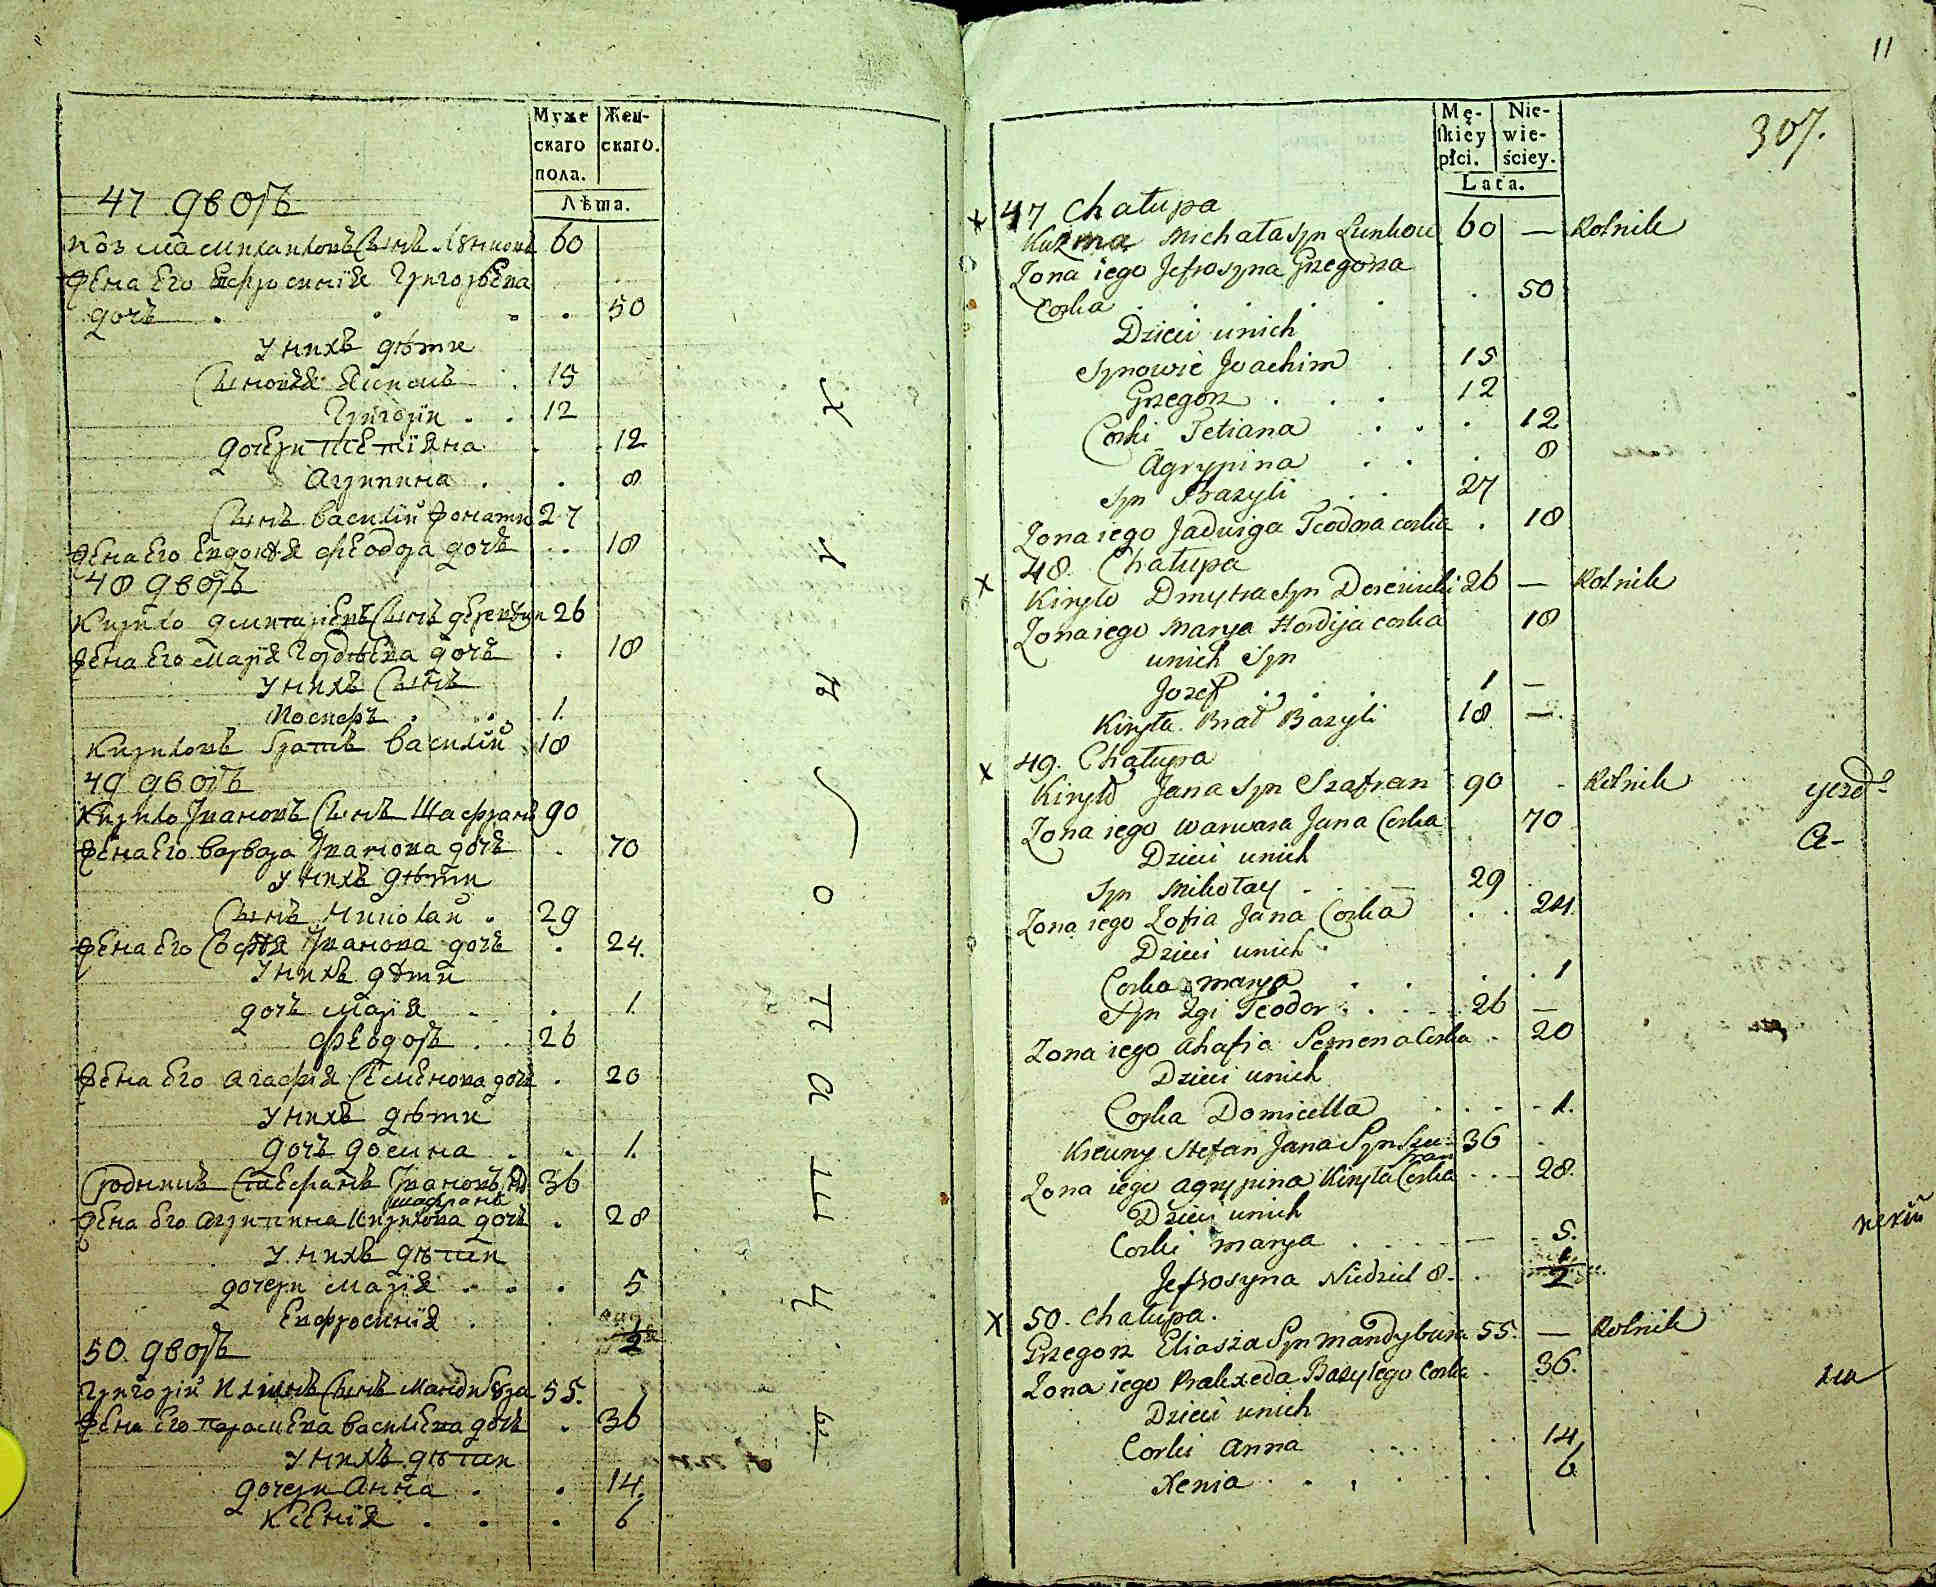 Муже
скаго
пола.
Жен-
скаго.
Лѣта.
47 дворъ
Козма Михаиловъ Сынъ 60
Жена Его Евфросинїя Григорьева
дочъ . . . . 50
У нихъ дѣти
Сыновья Аким . 15
Григорїи . . 12
дочери Тетїяна . . 12
Агрипина . . 8
Сынъ Василїй Женати 27
Жена Его Евдокїя Феодора дочъ . . 18
48 дворъ
Кирило Дмитарїевъ Сынъ 26
Жена Его Марїя Гордѣева дочъ . 18
У нихъ Сынъ
Иосифъ . . 1.
Кириловъ братъ Василїй 18
49 дворъ
Кирило Ивановъ Сынъ Шафранъ 90
Жена Его Варвара Иванова дочъ . 70
У нихъ дѣти
Сынъ Николай . 29
Жена Его Софїя Иванова дочъ . 24.
У нихъ дѣти
дочъ Марїя . . 1.
Феодоръ . . 26
Жена Его Агафїя Семенова дочъ . 20
У нихъ дѣти
дочъ Домина . . 1.
Сродникъ Стефанъ Ивановъ 36
Шафранъ
Жена Его Агрипина Кирилова дочъ . 28
У нихъ дѣти
дочери Марїя . . . 5
Евфросинїя . 1/2
50. дворъ
Григорїй Илїинъ Сынъ Мандибура 55.
Жена Его Параскева Василева дочъ . 36
У нихъ дѣти
дочери Анна . . 14.
Ксенїя . . . 6
11
307.
Mę-
skiey
płci.
Nie-
wie-
ściey.
Lata.
x 47 Chałupa
Kuźma Michała Syn Lunkow 60 — Rolnik
Zona iego Jefroszyna Grzegorza
Corka . . . . . 50
Dzieci unich
Synowie Joachim . 15
Grzegorz . . . 12
Corki Tetiana . . . 12
Agrypina . . . 8
Syn Bazyli . . 27
Zona iego Jadwiga Teodora corka . 18
x 48. Chałupa
Kiryło Dmytra Syn 26 — Rolnik
Zona iego Marya Hordija corka 18
unich Syn
Jozef . . . 1 —
Kiryła Brat Bazyli 18 —
x 49. Chałupa
Kiryło Jana Syn Szafran 90 - Rolnik
Zona iego Warwara Jana Corka 70
Dzieci unich
Syn Mikołay . . . 29
Zona iego Zofia Jana Corka . . 24.
Dzieci unich
Corka Marya . . . . 1
Syn 2gi Teodor . . . 26 —
Zona iego Ahafia Semena Corka . 20
Dzieci unich
Corka Domicella . . . . 1.
Krewny Stefan Jana Syn Sza- 36
fran
Zona iego Agrypina Kiryła Corka . . 28.
Dzieci unich
Corki Marya . . . 5.
Jefrosyna Niedziel 8. . 1/2
x 50. Chałupa.
Grzegorz Eliasza Syn Mandybura 55. — Rolnik
Zona iego Bazylego Corka . 36.
Dzieci unich
Corki Anna . . . 14
Xenia . . . . 6